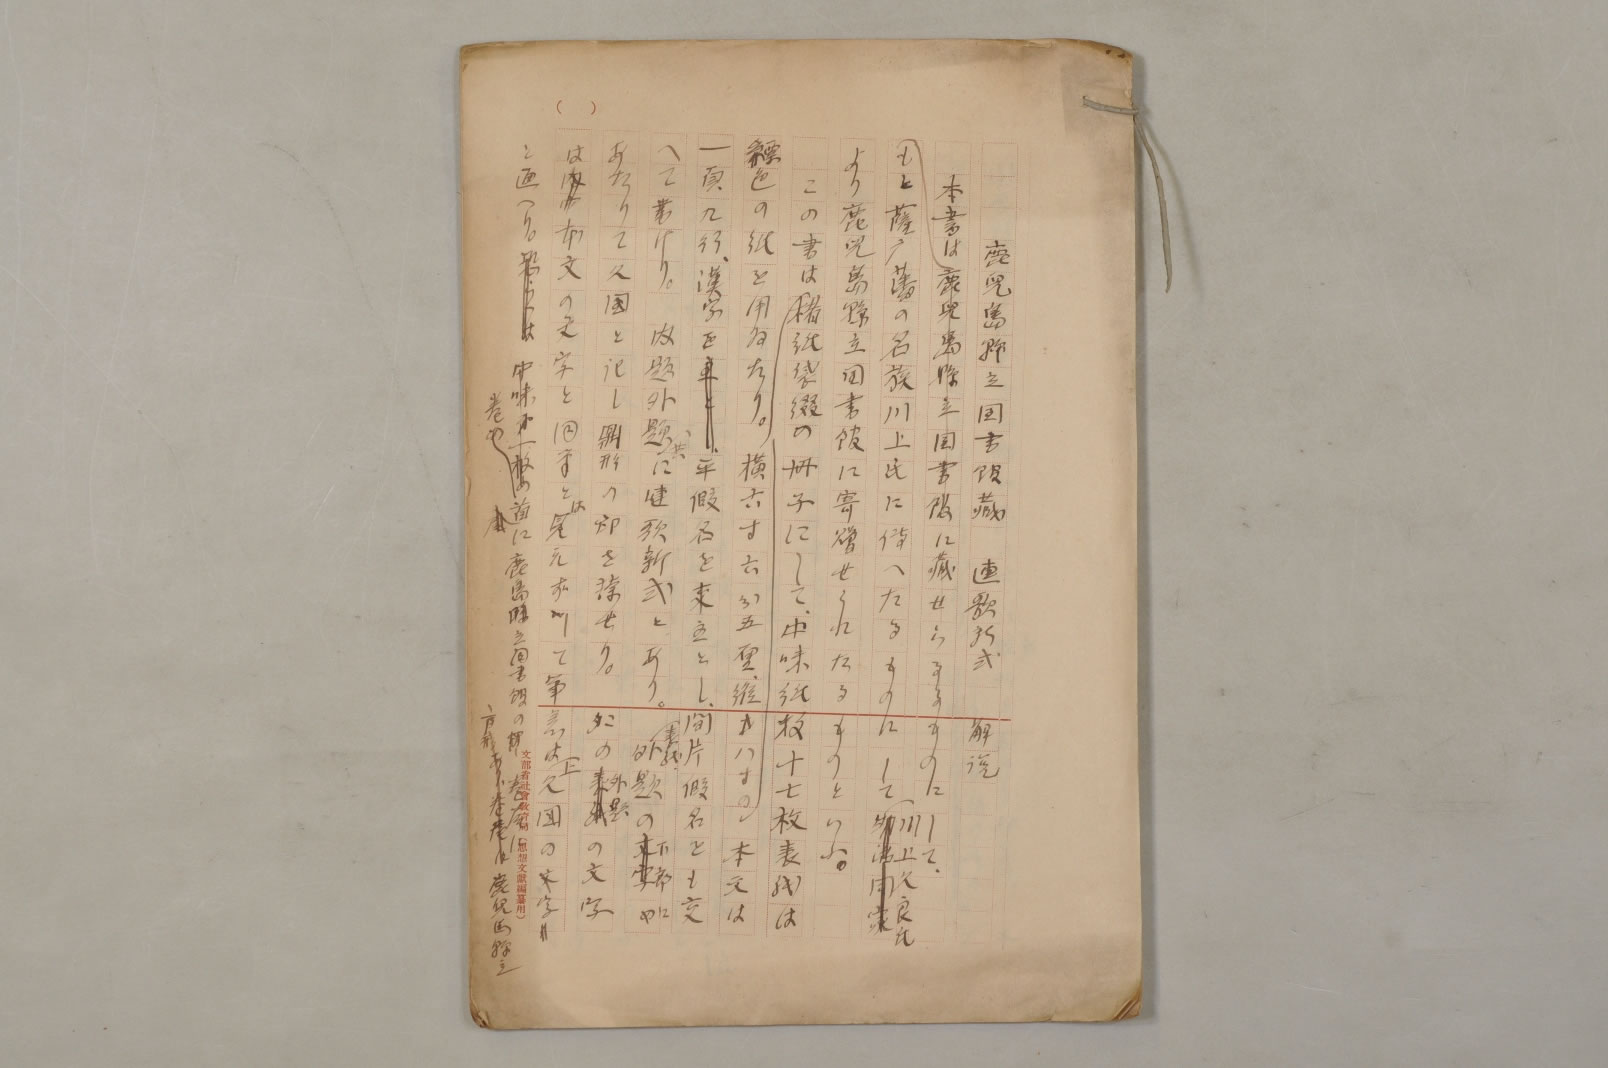 鹿児島縣立図書館藏 連歌新式 解説
本書は鹿児島縣立図書館に藏せらるるものにして、
もと薩广藩の名族川上氏に傳へたるものにして
川上久良氏
より鹿児島縣立図書館に寄贈せられたるものといふ。
この書は楮紙袋綴の冊子にして、中味紙枚十七枚表紙は
縹色の紙を用ゐたり。横六寸六分五厘、縦九八寸の 本文は
一頁九行、漢字を平假名を主とし、間片假名をも交
へて書けり。 内題外題共に連歌新式とあり。外題の下部に
あたりて久國と記し鼎形の印を捺せり。外題の文字
は本文の文字と同筆とは見えずして筆意は上久國の文字
と通へり。
中味第一枚の首に鹿島縣立図書館の印
巻尾に鹿児島縣立
( )
文部省社會教育局(思想文獻編纂用)